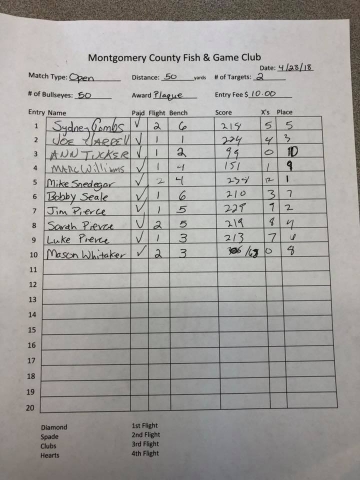 Montgomery County Fish & Game Club
Date: 4/28/18
Match Type: Open Distance: 50 yards # of Targets: 2
# of Bullseyes: 50 Award Plaque Entry Fee $ 10.00
Entry Name Paid Flight Bench Score X's Place
1 Sydney Combs ✓ 2 6 219 5 5
2 JOE YARBER ✓ 1 1 224 4 3
3 ANN TUCKER ✓ 1 2 99 0 10
4 MARC Williams ✓ 1 4 151 1 9
5 Mike Snedegar ✓ 2 4 234 2 1
6 Bobby Seale ✓ 1 6 210 3 7
7 Jim Pierce ✓ 1 5 229 9 2
8 Sarah Pierce ✓ 2 5 219 8 4
9 Luke Pierce ✓ 1 3 213 7 6
10 Mason Whitaker ✓ 2 3 0 8
11
12
13
14
15
16
17
18
19
20
Diamond 1st Flight
Spade 2nd Flight
Clubs 3rd Flight
Hearts 4th Flight